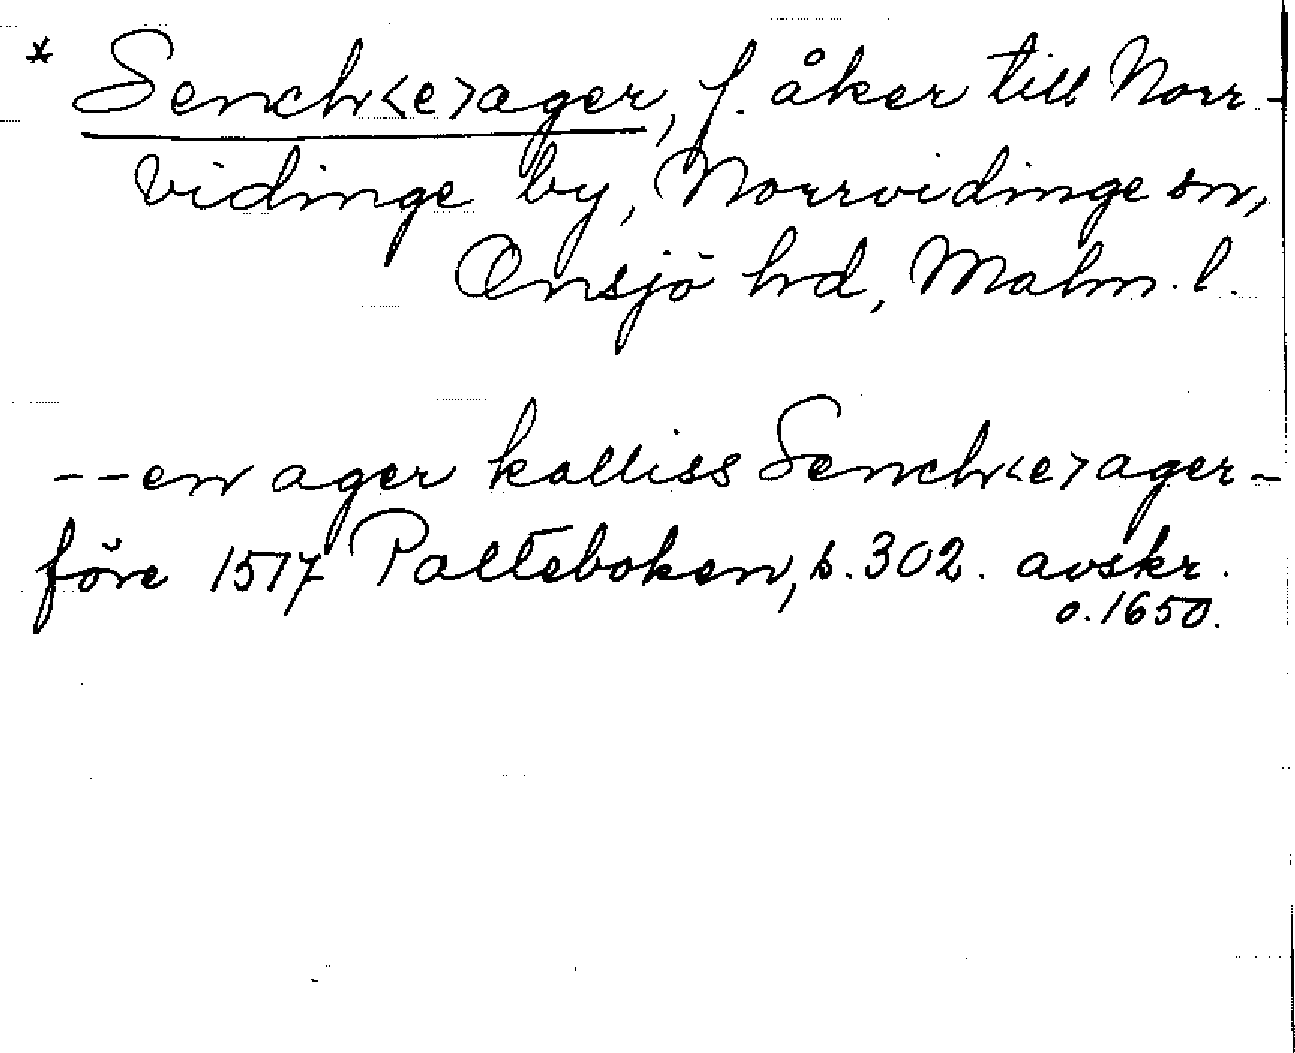 * Sench<e>ager, f. åker till Norr-
vidinge by, Norrvidinge sn,
Onsjö hd, Malm. l.
--en ager kalliss Sench<e>ager-
före 1517 Palteboken, s. 302. avskr.
o. 1650.